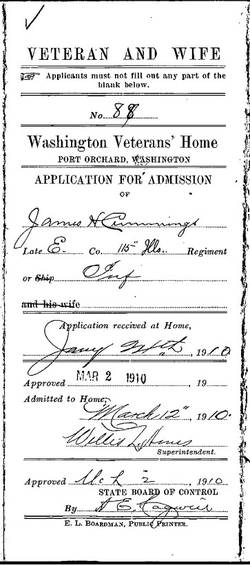 VETERAN AND WIFE
Applicants must not fill out any part of the
blank below.
No. 88
Washington Veterans' Home
PORT ORCHARD, WASHINGTON
APPLICATION FOR ADMISSION
OF
James H Cummings
Late E. Co. 115" Ills. Regiment
or Ship Inf
and his wife
Application received at Home,
Jany 1910
MAR 2 1910
Approved 19
Admitted to Home,
March 12" 1910.
Willis L. Ames
Superintendent.
Approved Mch 2 1910
STATE BOARD OF CONTROL
By
E. L. BOARDMAN, PUBLIC PRINTER.